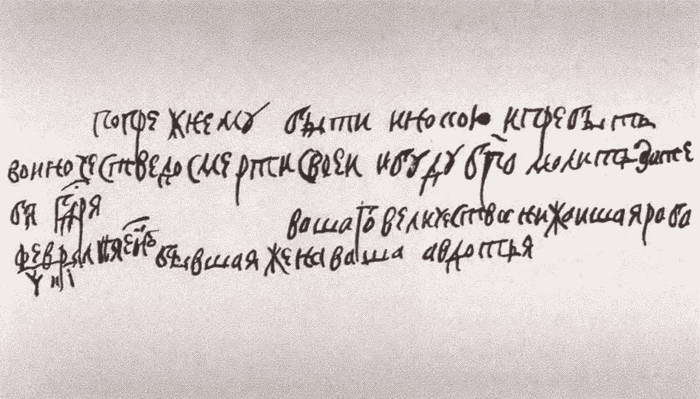 попрежнему быти инокою ипребыть
воиночестведосмерти своеи ибуду бга молить зате
бя гдря вашего величества нижаишая раба
февраля бывшая жена ваша авдотья